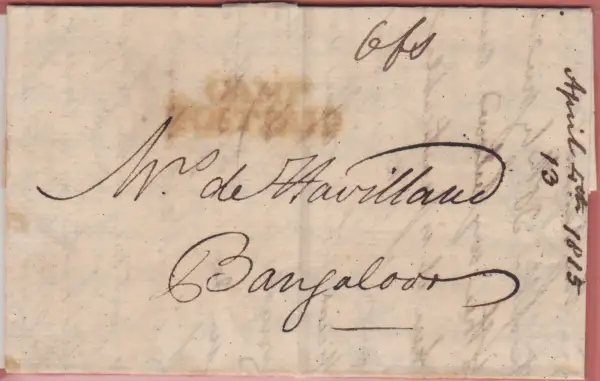 6 fs
Mrs de Havilland
Bangaloor
April 4th 1815
13